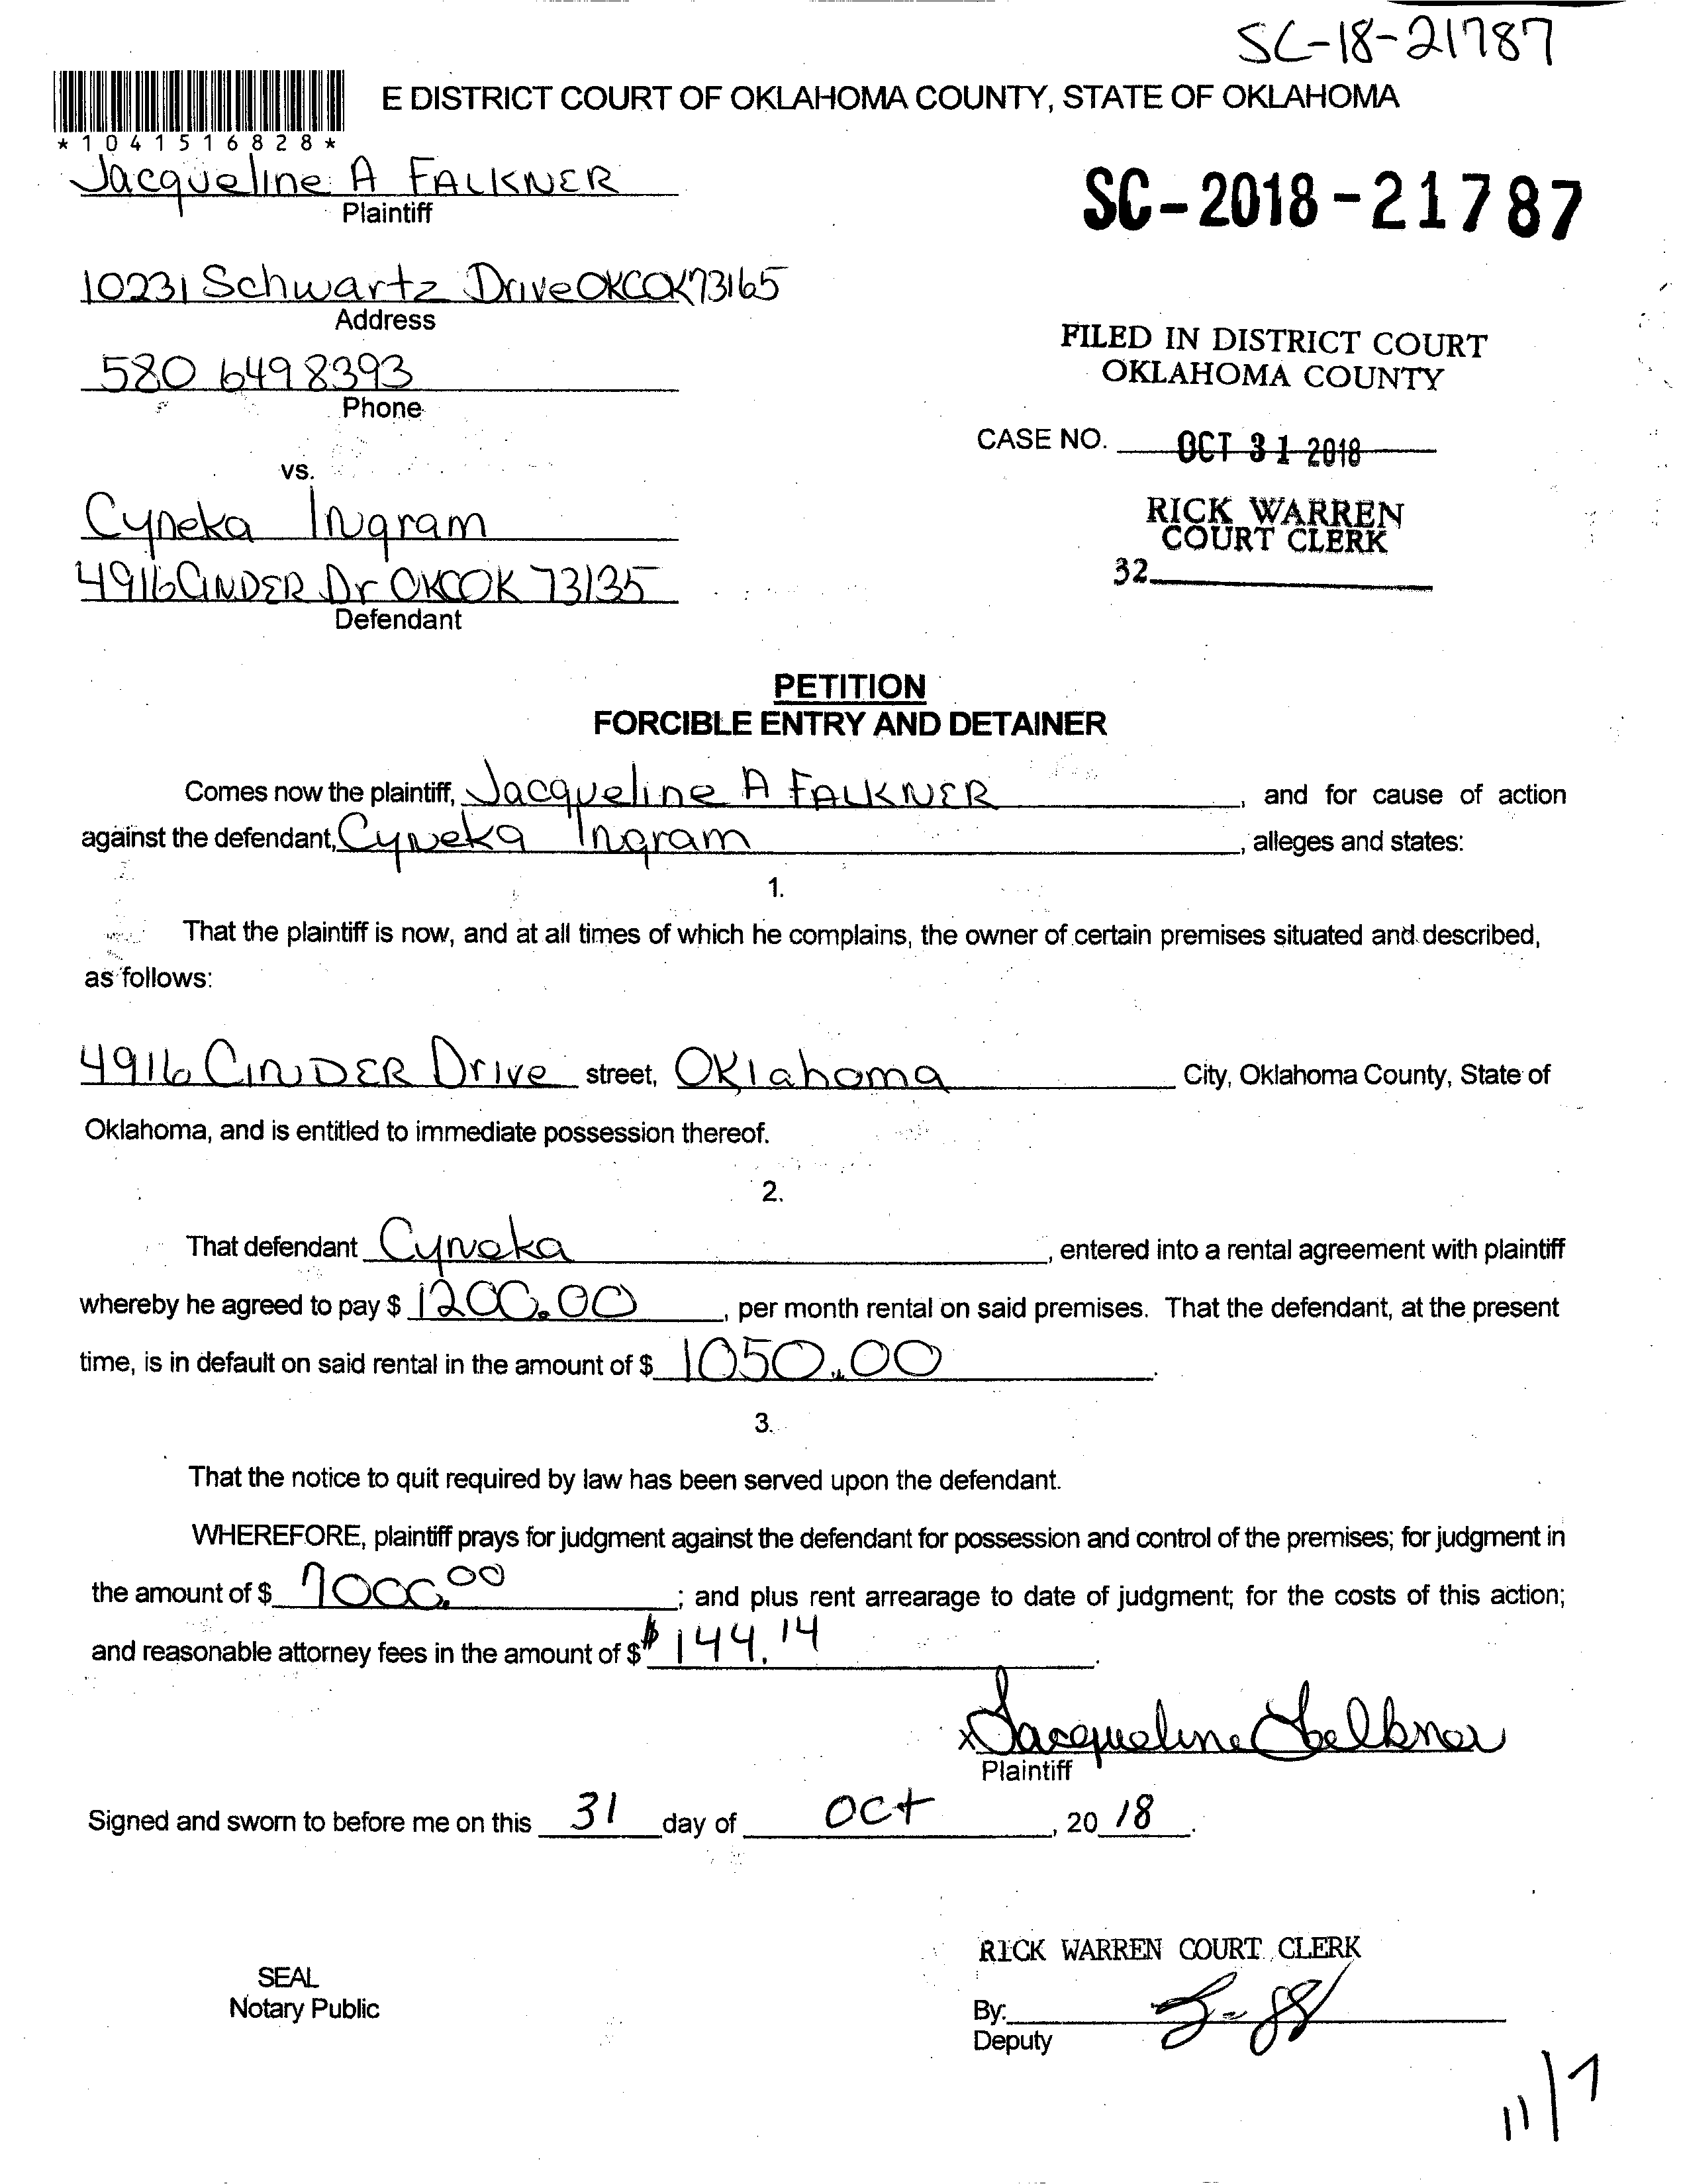 SC-18-21787
E DISTRICT COURT OF OKLAHOMA COUNTY, STATE OF OKLAHOMA
*1041516828*
Jacqueline A FALKNER
Plaintiff
SC-2018-21787
10231 Schwartz Drive OKC OK 73165
Address
FILED IN DISTRICT COURT
OKLAHOMA COUNTY
580 649 8393
Phone
CASE NO. OCT 31 2018
vs.
RICK WARREN
COURT CLERK
Cyneka Ingram
32
4916 CINDER Dr OKC OK 73135
Defendant
PETITION
FORCIBLE ENTRY AND DETAINER
Comes now the plaintiff, Jacqueline A FALKNER, and for cause of action
against the defendant, Cyneka Ingram, alleges and states:
1.
That the plaintiff is now, and at all times of which he complains, the owner of certain premises situated and described,
as follows:
4916 CINDER Drive street, Oklahoma City, Oklahoma County, State of
Oklahoma, and is entitled to immediate possession thereof.
2.
That defendant Cyneka, entered into a rental agreement with plaintiff
whereby he agreed to pay $ 1200.00, per month rental on said premises. That the defendant, at the present
time, is in default on said rental in the amount of $ 1050.00.
3.
That the notice to quit required by law has been served upon the defendant.
WHEREFORE, plaintiff prays for judgment against the defendant for possession and control of the premises; for judgment in
the amount of $ 7000.00; and plus rent arrearage to date of judgment; for the costs of this action;
and reasonable attorney fees in the amount of $ $144.14.
x Jacqueline Falkner
Plaintiff
Signed and sworn to before me on this 31 day of Oct, 20 18.
RICK WARREN COURT CLERK
SEAL
Notary Public
By:
Deputy
11/7